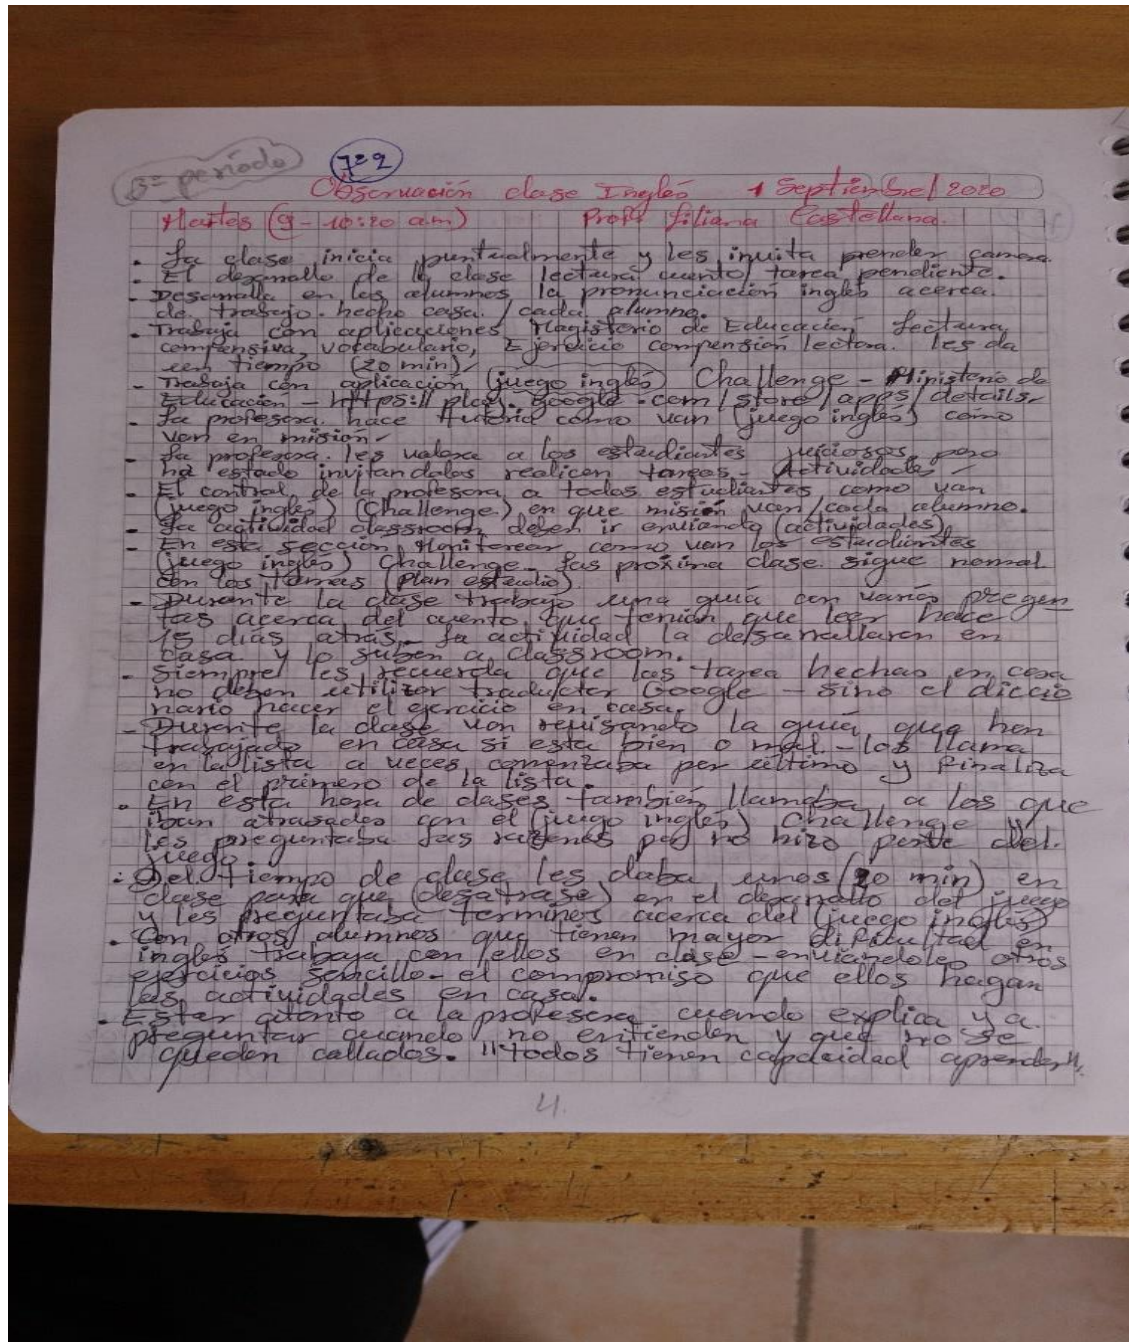 3º período
7=2
Observación clase Inglés 1 Septiembre/2020
Martes (9-10:20 am) Profª Liliana Castellana.
• La clase inicia puntualmente y les invita prender camara.
- El desarrollo de la clase lectura cuento, tarea pendiente.
- Desarrolla en los alumnos la pronunciación inglés acerca.
de trabajo. hecho casa. / cada alumno.
- Trabaja con aplicaciones Magisterio de Educación, Lectura,
compensiva, votabulario, Ejercicio compensión lectora. les da
un tiempo (20 min)
- Trabaja con aplicación (juego inglés) Challenge - Ministerio de
Educación - https://play.google.com/store/apps/details-
- La profesora. hace tutoria como van (juego inglés) como
van en misión-
- La profesora. les valora a los estudiantes juiciosos, pero
ha estado invitandolos realicen tareas - Actividades -
- El control de la profesora a todos estudiantes como van
(juego inglés) (Challenge) en que misión van/cada alumno.
- La actividad classroom deben ir enviando (actividades)
- En esta sección Moniterear como van los estudiantes
(juego inglés) Challenge - Las proxima clase. sigue normal
con los temas (plan estudio)
- Durante la clase trabajo una guía con varios pregun
tas acerca del cuento que tenían que leer hace
15 dias atrás - La actividad la desarrollaron en
casa y lo suben a classroom.
- Siempre les recuerda que las tarea hechas en casa
no deben utilizar traductor Google - sino el diccio
nario hacer el ejercicio en casa.
- Durante la clase van revisando la guía que han
trabajado en casa si esta bien o mal. - los llama
en la lista a veces comenzaba por último y finaliza
con el primero de la lista.
• En esta hora de clases también llamaba a los que
iban atrasados con el (juego inglés) Challenge y
les preguntaba las razones no hizo parte del.
juego
• Del tiempo de clase les daba unos (20 min) en
clase para que (desatrase) en el desarrollo del juego
y les preguntaba terminos acerca del (juego inglés)
• Con otros alumnos que tienen mayor dificultad en
inglés trabaja con ellos en clase - enviandoles otros
ejercicios sencillo - el compromiso que ellos hagan
las actividades en casa.
• Estar atento a la profesora cuando explica y a
preguntar cuando no entienden y que no se
queden callados. "todos tienen capacidad aprender".
4.